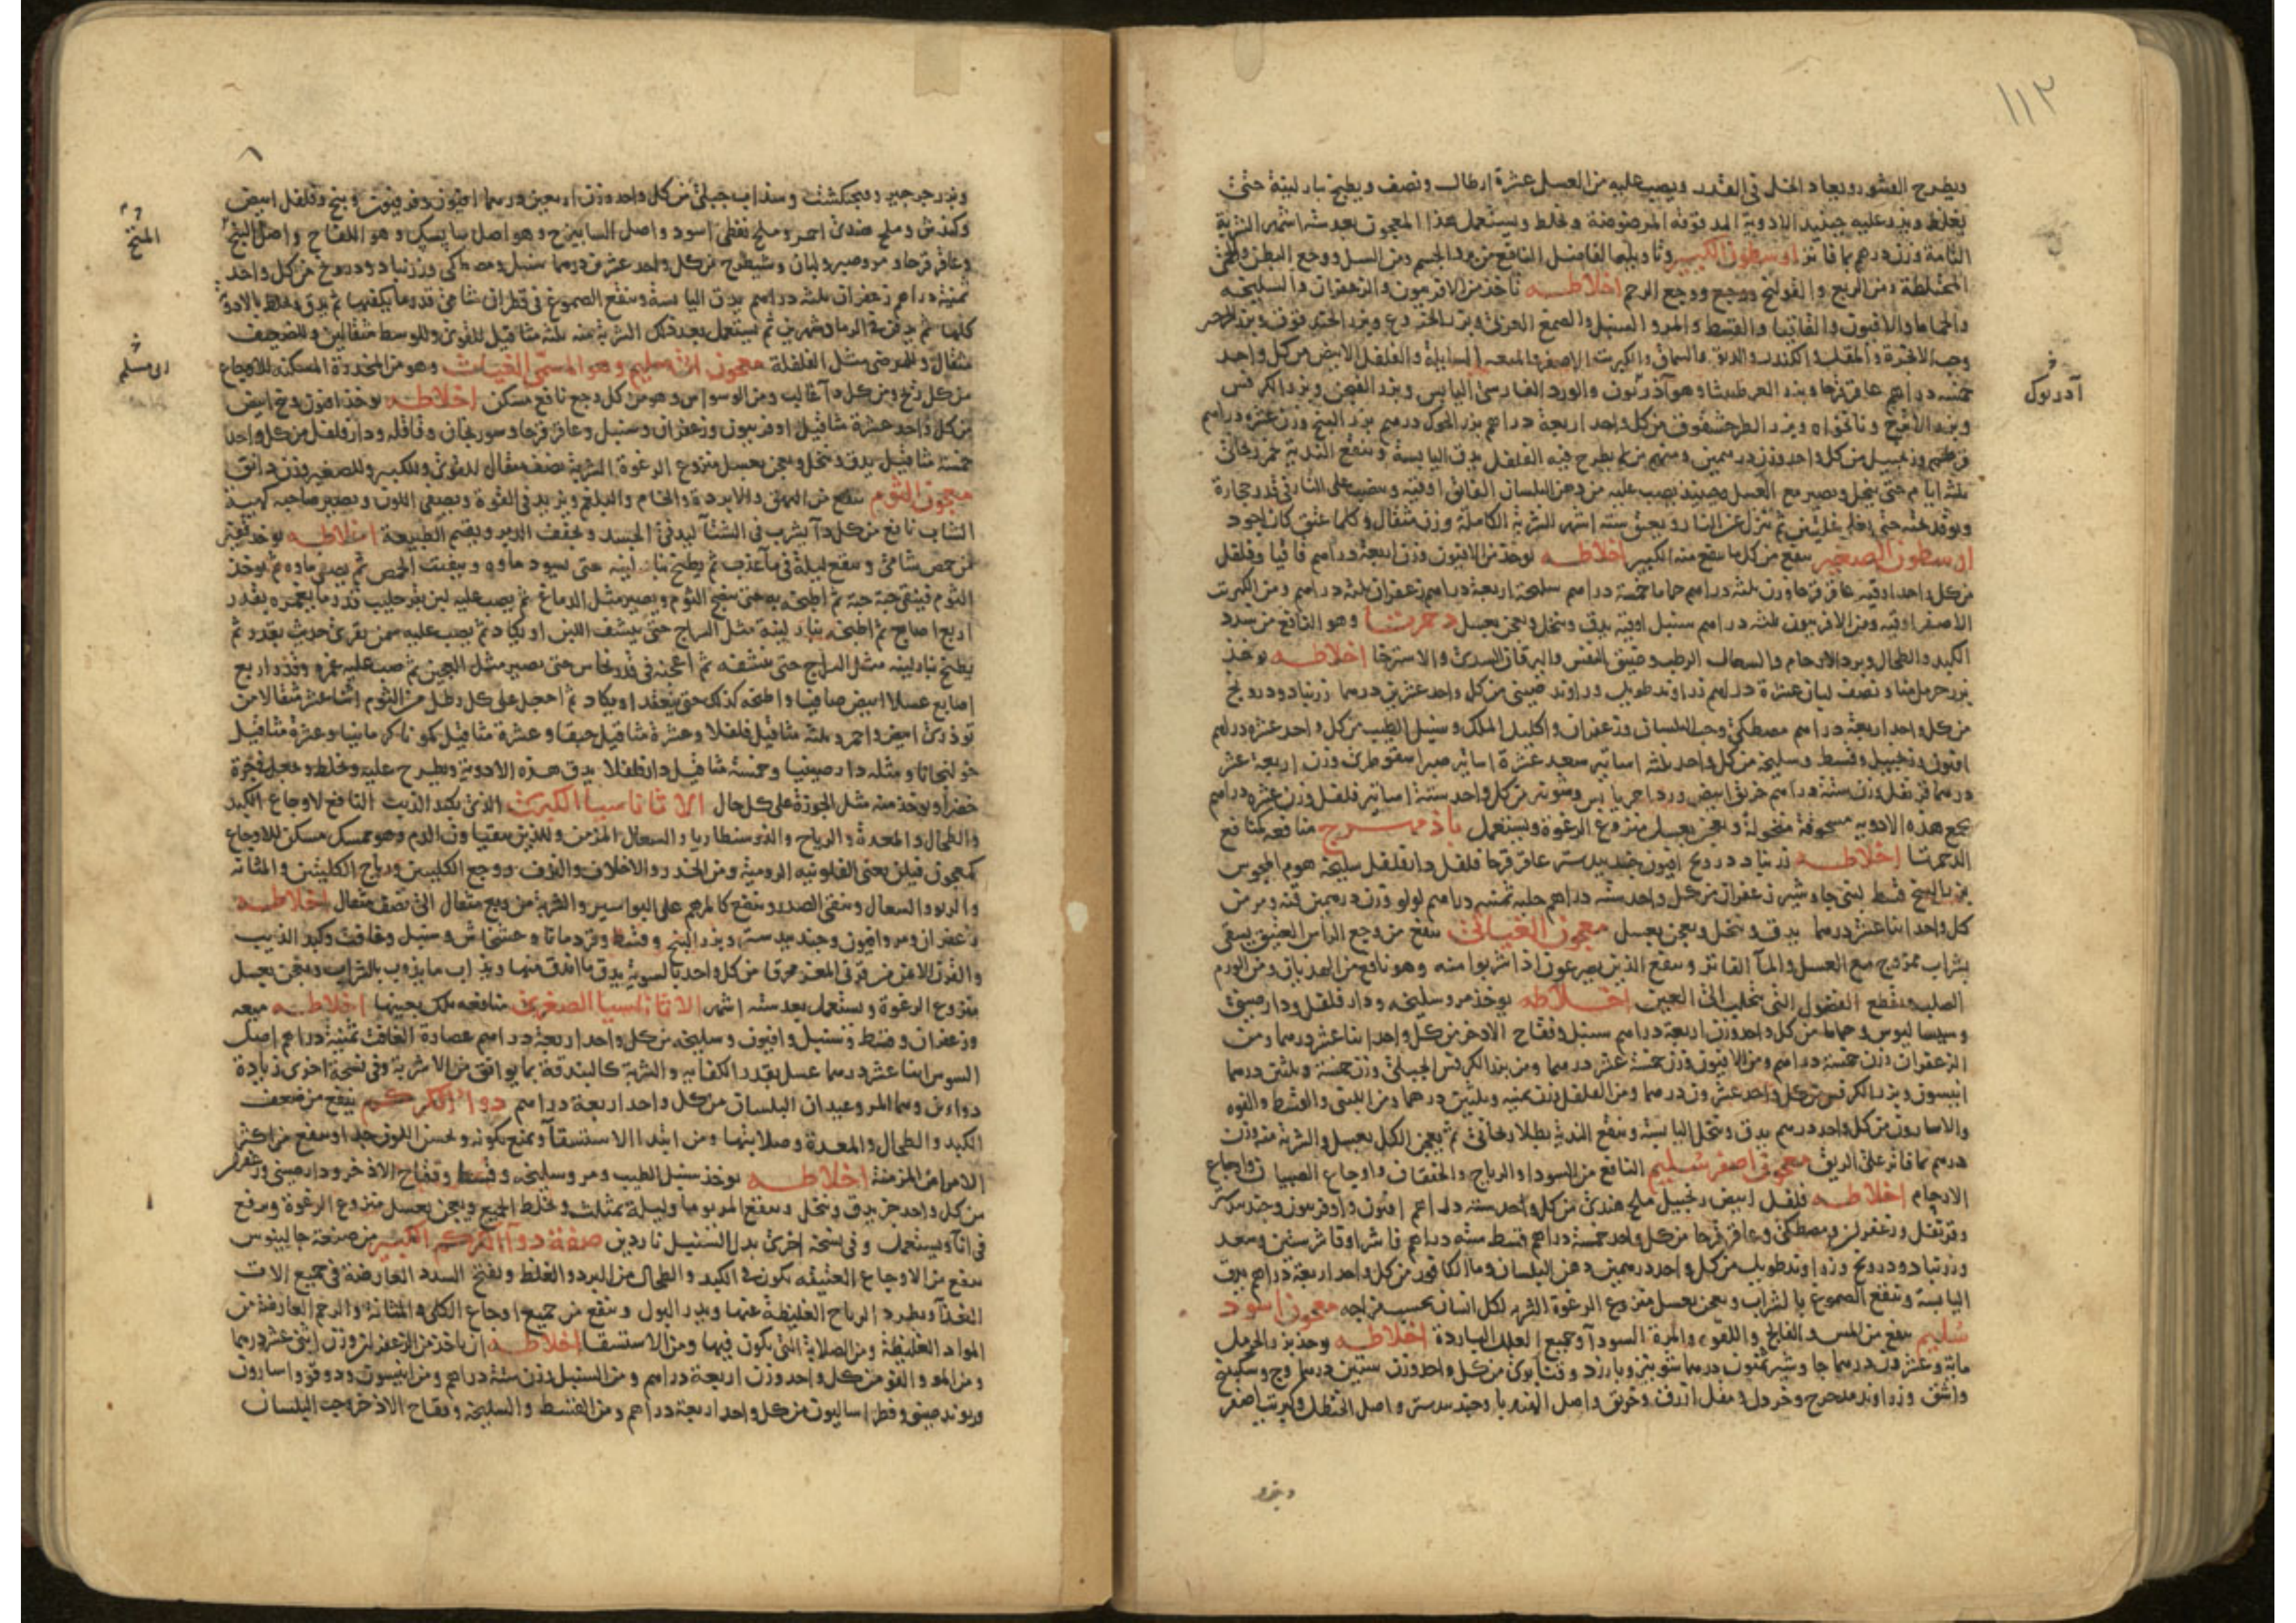 ١١٢
ويطرح القشور ويعاد الخل في القدر ويصب عليه من العسل عشرة ارطال ونصف ويطبخ بنار لينة حتى
يغلظ ويذر عليه حينئذ الادوية المدقوقة المرضوضة ويخلط ويستعمل هذا المعجون بعد ستة اشهر الشربة
التامة وزن درهم بما فاتر ارسطون الكبير وتاويلها الفاضل النافع من برد الجسم ومن السل ووجع البطن
المختلطة ومن الريح والقولنج ووجع الرحم اخلاطه تاخذ من الافربيون والزعفران والسليخه
والحماما والافيون والقاقيا والقسط والمر والسنبل والصمغ العربي وبزر
وحب الانجرة والمقل والكندر والسماق والكبريت الاصفر والميعه السايلة والفلفل الابيض من كل واحد
خمسه دراهم عاقرقرحا وبزر العرطنيثا وهو آذربون والورد الفارسي اليابس وبزر وبزر الكرفس
وبزر ونانخواه وبزر من كل واحد اربعة دراهم بزر درهم بزر البنج وزن عشرة دراهم
وزنجبيل من كل واحد وزن درهمين يطرح فيه الفلفل يدق اليابسة وينقع بخمر ريحاني
ثلثه ايام حتى ينحل ويصير مع العسل حينئذ يصب عليه من دهن البلسان الفائق اوقيه وينصب على النار في قدر حجارة
ويوقد تحته حتى يغلي غليتين ثم ينزل عن النار ويعتق ستة اشهر الشربة الكاملة وزن مثقال وكلما عتق كان اجود
ارسطون الصغير ينفع من كل ما ينفع منه الكبير اخلاطه يوخذ من الافيون وزن اربعة دراهم قاقيا وفلفل
من كل واحد اوقيه عاقرقرحا وزن ثلثه دراهم حماما خمسة دراهم سليخة اربعة دراهم زعفران ثلثه دراهم ومن الكبريت
الاصفر اوقيه ومن الافربيون ثلثه دراهم سنبل اوقية يدق وينخل ويعجن بعسل دحمرثا وهو النافع من سدد
الكبد والطحال وبرد الارحام والسعال الرطب وضيق النفس واليرقان السددي والاسترخا اخلاطه يوخذ
بزر حرمل ونصف لبان عشرة دراهم زراوند طويل وراوند صيني من كل واحد عشرين درهما زرنباد ودرونج
من كل واحد اربعة دراهم مصطكي وحب البلسان وزعفران واكليل الملك وسنبل الطيب من كل واحد عشرة دراهم
افيون وزنجبيل وقسط وسليخة من كل واحد ثلثه اساتير سعد عشرة اساتير صبر اسقوطري وزن اربعة عشر
درهما قرنفل وزن ستة دراهم خربق ابيض وورد احمر يابس وشونيز من كل واحد ستة اساتير فلفل وزن عشرة دراهم
يجمع هذه الادويه مسحوقة منخولة ويعجن بعسل منزوع الرغوة ويستعمل باذمهرج منافعه كمنافع
الدحمرثا اخلاطه زرنباد درونج افيون جندبيدستر عاقرقرحا فلفل دارفلفل سليخة هوم المجوس
بزر البنج قسط جاوشير زعفران من كل واحد سته دراهم حلبه ثمنيه دراهم لولو وزن درهمين قنه ومر من
كل واحد اثنا عشر درهما يدق وينخل ويعجن بعسل معجون الغياثي ينفع من وجع الرأس العتيق يسقى
بشراب ممزوج مع العسل والمآ الفاتر وينفع الذين يصرعون اذا شربوا منه وهو نافع من الهذيان ومن الورم
الصلب ويقطع الفضول التي تتحلب الى العين اخلاطه يوخذ مر وسليخه ودارفلفل ودارصيني
وسيساليوس وحماما من كل واحد وزن اربعة دراهم سنبل وفقاح الاذخر من كل واحد اثنا عشر درهما ومن
الزعفران وزن خمسة دراهم ومن الافيون وزن خمسة عشر درهما ومن بزر الكرفس الجبلي وزن خمسة وثلثين درهما
انيسون وبزر الكرفس من كل واحد عشرون درهما ومن الفلفل وزن ثمنيه وثلثين درهما ومن اللبنى والقسط والفوه
والاسارون من كل واحد درهم يدق وينخل اليابسة وينقع الندية بطلا ريحاني ثم يعجن الكل بعسل والشربة منه وزن
درهم بما فاتر على الريق معجون اصفر سليم النافع من السودا والرياح والخفقان واوجاع الصبيان واوجاع
الارحام اخلاطه فلفل ابيض زنجبيل ملح هندي من كل واحد سته دراهم افيون وافربيون وجندبيدستر
وقرنفل وزعفران ومصطكي وعاقرقرحا من كل واحد خمسة دراهم قسط سته دراهم وسعد
وزرنباد ودرونج وزراوند طويل من كل واحد درهمين دهن البلسان وما الكافور من كل واحد اربعة دراهم يدق
اليابسة وينقع الصموغ بالشراب ويعجن بعسل منزوع الرغوة الشربه لكل انسان بحسب مزاجه معجون اسود
سليم ينفع من المس والفالج واللقوه والمرة السودآ وجميع العلل الباردة اخلاطه يوخذ بزر الحرمل
ماية وعشرون درهما جاوشير ثمنون درهما شونيز وبارزد من كل واحد وزن ستين درهم وج وسكبينج
واشق وزراوند مدحرج وخردل ومقل ازرق وخربق واصل الهندبا وجندبيدستر واصل الحنظل وكبريت اصفر
وبزر
آذربوك
وبزر جرجير وفنجنكشت وسذاب جبلي من كل واحد وزن اربعين درهما افيون وفربيون وبنج وفلفل ابيض
وكندش وملح هندي احمر وملح نفطي اسود واصل السابيزج وهو اصل وهو اللفاح واصل البنج
وعاقرقرحا ومر وصبر ولبان وشيطرج من كل واحد عشرين درهما سنبل ومصطكي وزرنباد ودرونج من كل واحد
ثمنية دراهم زعفران ثلثه دراهم يدق اليابسة وينقع الصموغ في قطران شامي قدر ما يكفيها ثم يدق ويخلط بالادوية
كلها ثم يدفن في الرماد شهرين ثم يستعمل بعد ذلك الشربة منه ثلثه مثاقيل للقوي وللوسط مثقالين وللضعيف
مثقال وللمرضى مثل الفلفلة معجون ابي مسلم وهو المسمى الغياث وهو من المخدرة المسكنة للاوجاع
من كل ريح ومن كل دآ غالب ومن الوسواس وهو من كل وجع نافع مسكن اخلاطه يوخذ افيون وبنج ابيض
من كل واحد عشرة مثاقيل افربيون وزعفران وسنبل وعاقرقرحا وسورنجان وقاقله ودارفلفل من كل واحد
خمسة مثاقيل يدق وينخل ويعجن بعسل منزوع الرغوة الشربة نصف مثقال للقوي والكبير وللصغير وزن دانق
معجون الثوم ينفع من البهق والابردة والخام والبلغم ويزيد في القوة ويصفي اللون ويصير صاحبه كهيئة
الشاب نافع من كل دآ يشرب في الشتآ ليدفئ الجسد ويقيم الطبيعة اخلاطه يوخذ
من حمص شامي وينقع ليلة في مآ عذب ثم يطبخ بنار لينه حتى يسود ماوه ويتفتت الحمص ثم يصفى ماوه ثم يوخذ
الثوم فينقى حبة حبة ثم اطبخه به حتى ينضج الثوم ويصير مثل الدماغ ثم يصب عليه لبن بقر حليب قدر ما يغمره بقدر
اربع اصابع ثم اطبخه بنار لينة مثل السراج حتى ينشف اللبن او يكاد ثم يصب عليه سمن بقري حديث بقدره ثم
يطبخ بنار لينه مثل السراج حتى ينشفه ثم اعجنه في قدر نحاس حتى يصير مثل العجين ثم صب عليه غمره وقدر اربع
اصابع عسلا ابيض صافيا واطبخه كذلك حتى ينعقد او يكاد ثم اجعل على كل رطل من الثوم اثنا عشر مثقالا من
توذري ابيض واحمر وثلثه مثاقيل فلفلا وعشرة مثاقيل حبقا وعشرة مثاقيل كمونا كرمانيا وعشرة مثاقيل
خولنجانا ومثله دارصينيا وخمسة مثاقيل دارفلفلا يدق هذه الادوية ويطرح عليه ويخلط ويجعل في جرة
خضرآ ويوخذ منه مثل الجوزة على كل حال الاثاناسيا الكبرى الذي بكبد الذيب النافع لاوجاع الكبد
والطحال والمعدة والرياح والذوسنطاريا والسعال المزمن وللذين يتقياون الدم وهو ممسك مسكن للاوجاع
كمعجون فيلن يعني الفلونيه الرومية ومن الخدر والاخلاف والنزف ووجع الكليتين ورياح الكليتين والمثانه
والربو والسعال وينقي الصدر وينفع كالمرهم على البواسير والشربة من ربع مثقال الى نصف مثقال اخلاطه
زعفران ومر وافيون وجندبيدستر وبزر البنج وقسط وقردمانا وخشخاش وسنبل وغافت وكبد الذيب
والقرن الايمن من قرني المعز محرقا من كل واحد بالسوية يدق ما اندق منها ويذاب ما يذوب بالشراب ويعجن بعسل
منزوع الرغوة ويستعمل بعد ستة اشهر الاثاناسيا الصغرى منافعه تلك بعينها اخلاطه ميعه
وزعفران وقسط وسنبل وافيون وسليخه من كل واحد اربعة دراهم عصارة الغافت ثمنية دراهم اصل
السوس اثنا عشر درهما عسل بقدر الكفايه والشربة كالبندقة بما يوافق من الاشربة وفي نسخة اخرى زيادة
دواءين وهما المر وعيدان البلسان من كل واحد اربعة دراهم دوآ الكركم ينفع من ضعف
الكبد والطحال والمعدة وصلابتها ومن ابتدا الاستسقآ ويمنع كونه ويحسن اللون جدا وينفع من اكثر
الامراض المزمنة اخلاطه يوخذ سنبل الطيب ومر وسليخه وقسط وفقاح الاذخر ودارصيني وزعفران
من كل واحد جز يدق وينخل وينقع المر يوما وليلة بمثلث ويخلط الجميع ويعجن بعسل منزوع الرغوة ويرفع
في انآ ويستعمل وفي نسخة اخرى بدل السنبل ناردين صفة دوآ الكركم الكبير من صنعة جالينوس
ينفع من الاوجاع العتيقه تكون في الكبد والطحال من البرد والغلظ ويفتح السدد العارضة في جميع الات
الغذآ ويطرد الرياح الغليظة عنها ويدر البول وينفع من جميع اوجاع الكلى والمثانة والرحم العارضة من
المواد الغليظة ومن الصلابة التي تكون فيها ومن الاستسقا اخلاطه ان ياخذ من الزعفران وزن اثنى عشر درهما
ومن المر والفو من كل واحد وزن اربعة دراهم ومن السنبل وزن ستة دراهم ومن انيسون ودوقو واسارون
وريوند صيني وفطراساليون من كل واحد اربعة دراهم ومن القسط والسليخة وفقاح الاذخر وحب البلسان
المنج
ابي مسلم